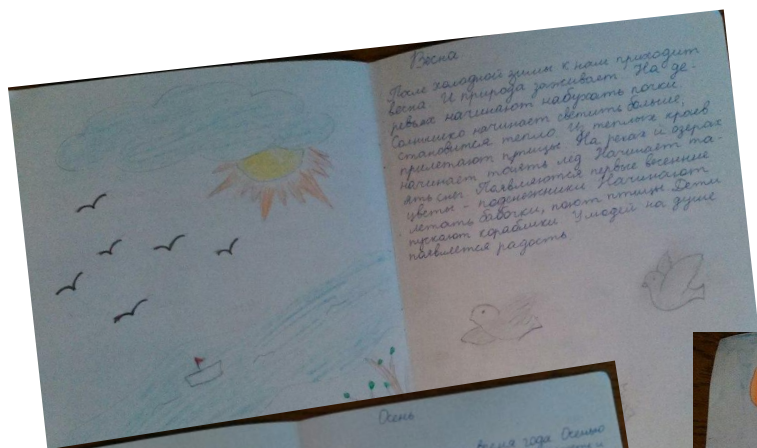 Весна
После холодной зимы к нам приходит
весна. И природа оживает! На де-
ревьях начинают набухать почки.
Солнышко начинает светить больше,
становится тепло. Из теплых краев
прилетают птицы. На реках и озерах
начинает таять лед. Начинает та-
ять снег. Появляются первые весенние
цветы - подснежники. Начинают
летать бабочки, поют птицы. Дети
пускают кораблики. У людей на душе
появляется радость.
Осень
время года. Осенью